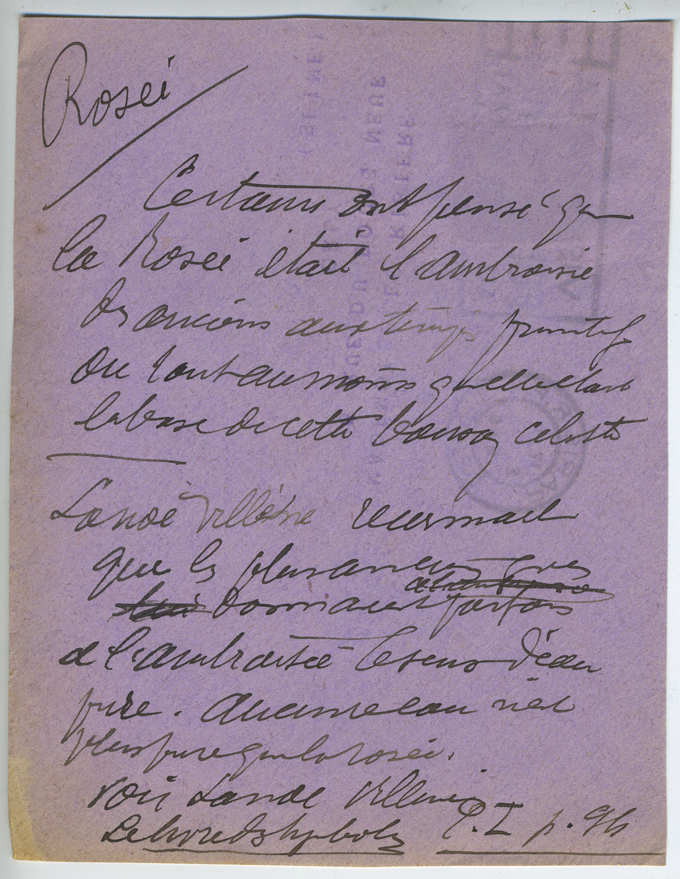 Rosée
Certains ont pensé que
la Rosée était l'ambroisie
des anciens aux temps primitifs
ou tout au moins qu'elle était
la base de cette boisson céleste
Lanoë Villène
que les plus anciens grecs
donnaient parfois
à l'ambroisie le sens d'eau
pure. Aucune eau n'est
plus pure que la rosée.
Voir Lanoë Villène
Le livre des symboles T. I p. 96